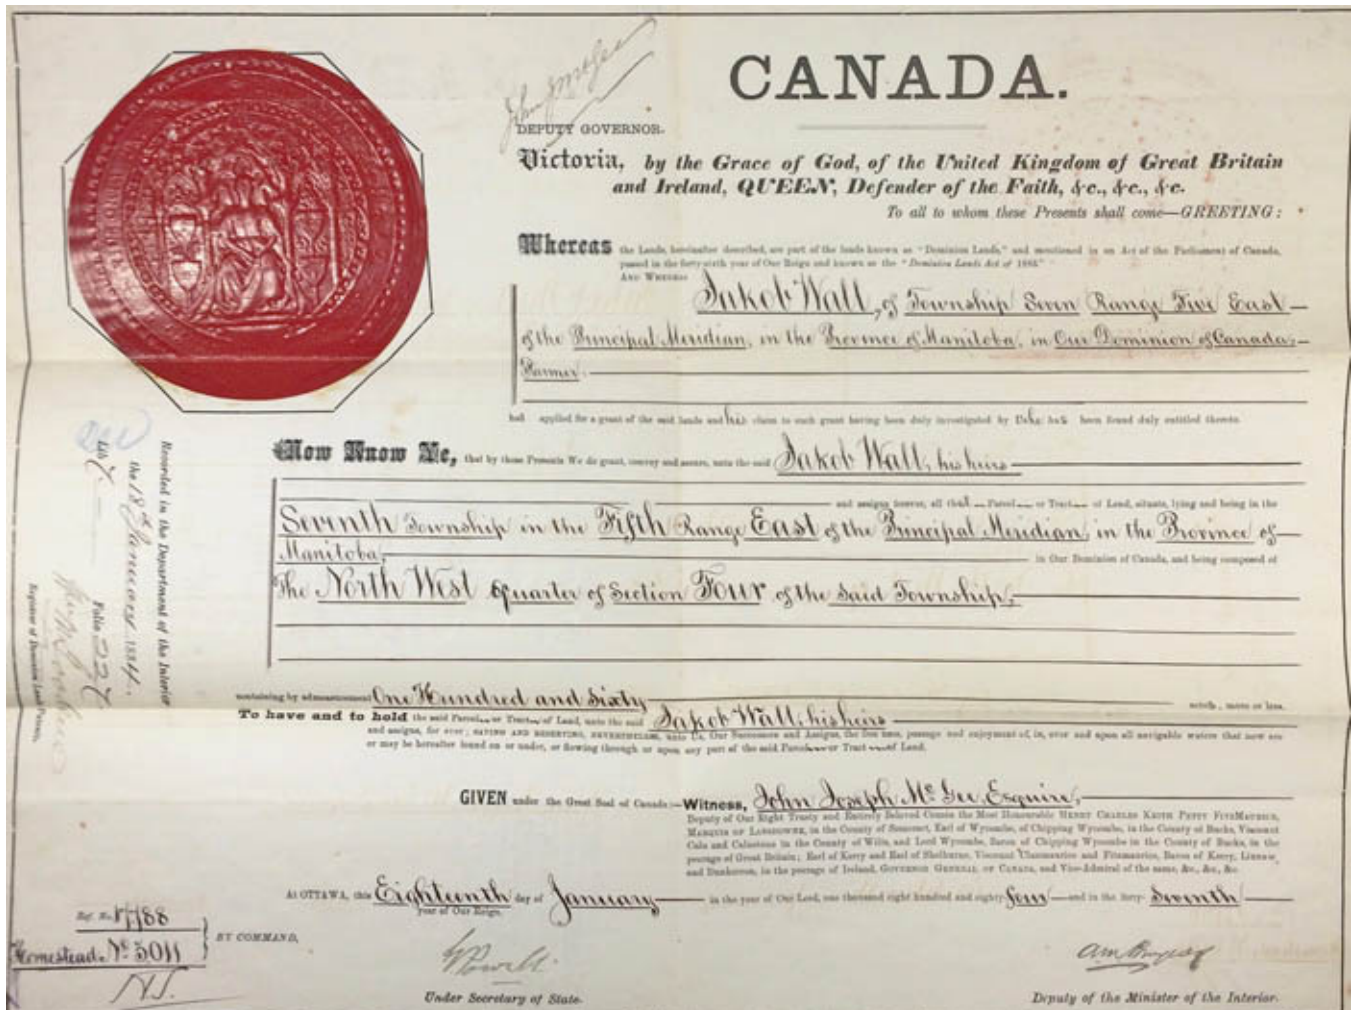 CANADA.
John J McGee
DEPUTY GOVERNOR.
Victoria, by the Grace of God, of the United Kingdom of Great Britain
and Ireland, QUEEN, Defender of the Faith, &c., &c., &c.
To all to whom these Presents shall come—GREETING:
Whereas the Lands, hereinafter described, are part of the lands known as "Dominion Lands," and mentioned in an Act of the Parliament of Canada,
passed in the forty-sixth year of Our Reign and known as the "Dominion Lands Act of 1883"
AND WHEREAS
Jakob Wall, of Township Seven Range Five East
of the Principal Meridian, in the Province of Manitoba, in Our Dominion of Canada,
Farmer.
hath applied for a grant of the said lands and his claim to such grant having been duly investigated by Us, he has been found duly entitled thereto.
Now Know Ye, that by these Presents We do grant, convey and assure, unto the said Jakob Wall, his heirs
and assigns forever, all that Parcel or Tract of Land, situate, lying and being in the
Seventh Township in the Fifth Range East of the Principal Meridian, in the Province of
Manitoba, in Our Dominion of Canada, and being composed of
The North West Quarter of Section Four of the said Township,
containing by admeasurement One Hundred and Sixty acres, more or less.
To have and to hold the said Parcel or Tract of Land, unto the said Jakob Wall, his heirs
and assigns, for ever; SAVING AND RESERVING, NEVERTHELESS, unto Us, Our Successors and Assigns, the free uses, passage and enjoyment of, in, over and upon all navigable waters that now are
or may be hereafter found on or under, or flowing through or upon any part of the said Parcel or Tract of Land.
GIVEN under the Great Seal of Canada:—Witness, John Joseph McGee, Esquire,
Deputy of Our Right Trusty and Entirely Beloved Cousin the Most Honourable HENRY CHARLES KEITH PETTY FITZMAURICE,
MARQUIS OF LANSDOWNE, in the County of Somerset, Earl of Wycombe, of Chipping Wycombe, in the County of Bucks, Viscount
Caln and Calnstone in the County of Wilts, and Lord Wycombe, Baron of Chipping Wycombe in the County of Bucks, in the
peerage of Great Britain; Earl of Kerry and Earl of Shelburne, Viscount Clanmaurice and Fitzmaurice, Baron of Kerry, Lixnaw,
and Dunkerron, in the peerage of Ireland, GOVERNOR GENERAL OF CANADA, and Vice-Admiral of the same, &c., &c., &c.
At OTTAWA, this Eighteenth day of January in the year of Our Lord, one thousand eight hundred and eighty-four and in the forty-Seventh
year of Our Reign.
Ref. No. 17788
Homestead No 5011
BY COMMAND,
Under Secretary of State.
Deputy of the Minister of the Interior.
Recorded in the Department of the Interior
the 18th January 1884.
Lib. Folio 227
Registrar of Dominion Lands Patents.